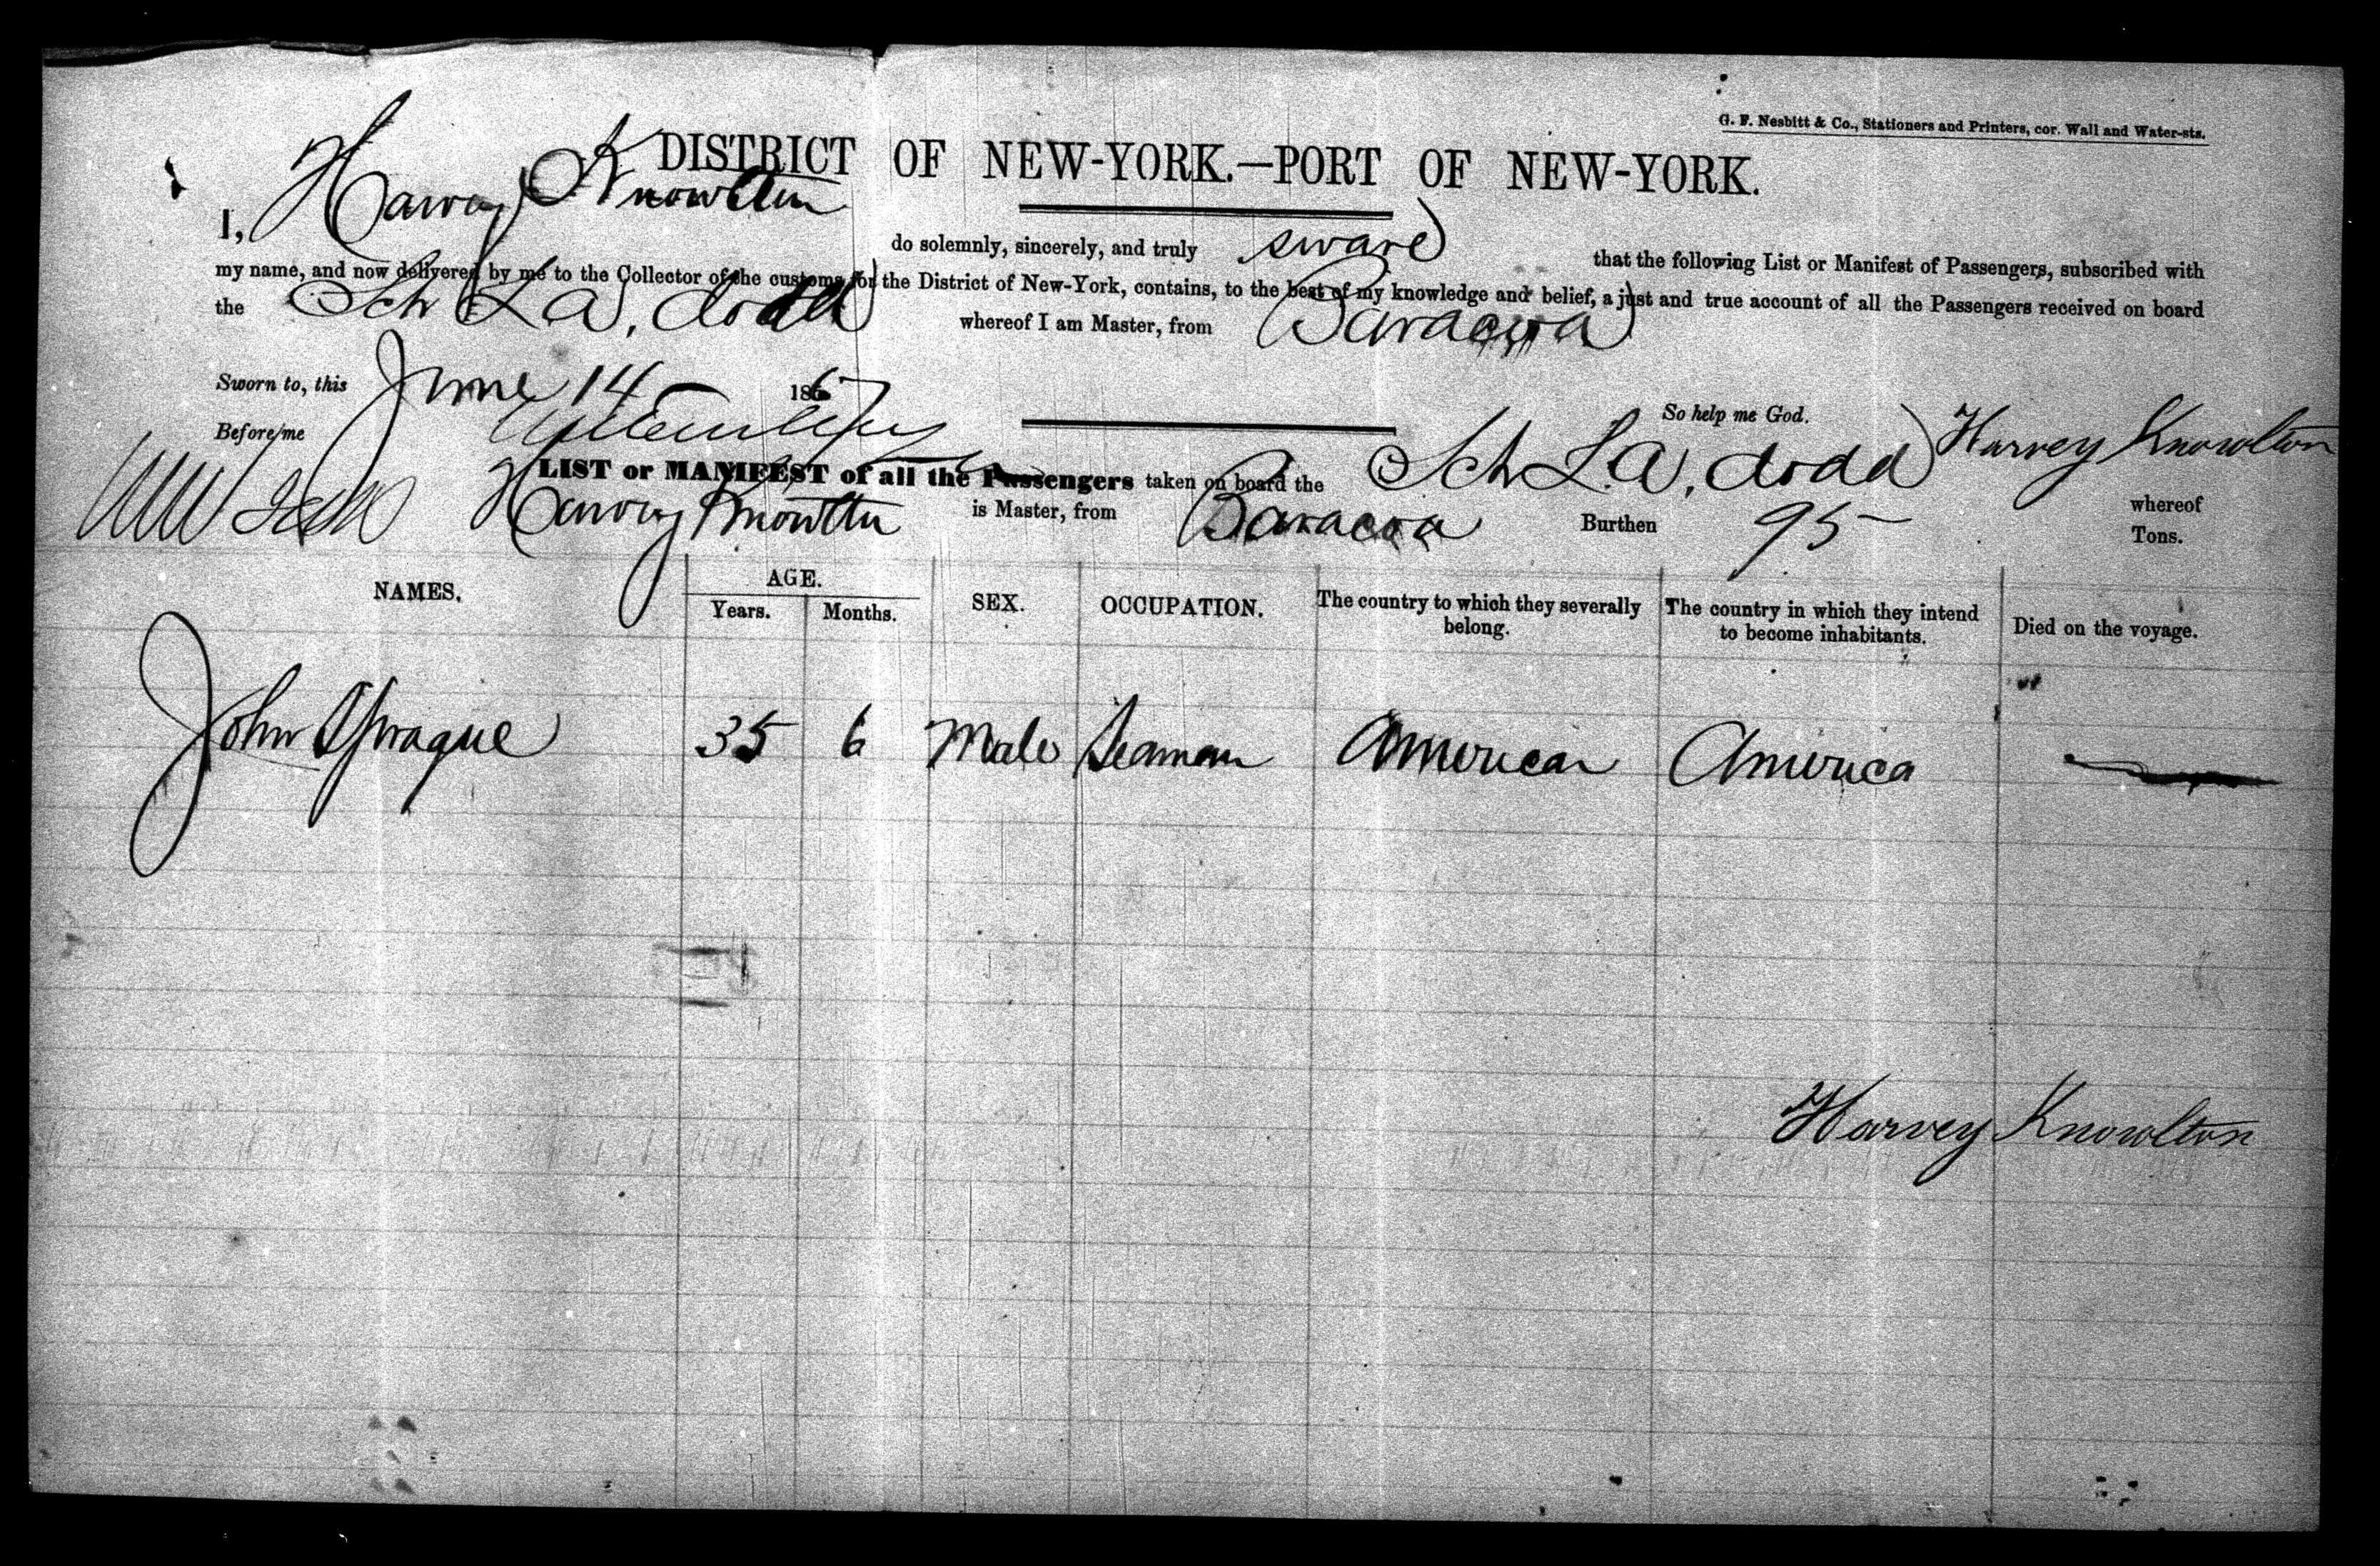 G. F. Nesbitt & Co., Stationers and Printers, cor. Wall and Water-sts.
DISTRICT OF NEW-YORK.—PORT OF NEW-YORK.
I, Harvey Knowlton do solemnly, sincerely, and truly sware that the following List or Manifest of Passengers, subscribed with
my name, and now delivered by me to the Collector of the customs for the District of New-York, contains, to the best of my knowledge and belief, a just and true account of all the Passengers received on board
the Sch L A, dodd whereof I am Master, from Baracoa
Sworn to, this June 14 1867
So help me God.
Before me
Harvey Knowlton
LIST or MANIFEST of all the Passengers taken on board the Sch L. A, dodd whereof
Harvey Knowlton is Master, from Baracoa Burthen 95 Tons.
NAMES. AGE. SEX. OCCUPATION. The country to which they severally belong. The country in which they intend to become inhabitants. Died on the voyage.
Years. Months.
John Sprague 35 6 Male Seaman American America
Harvey Knowlton